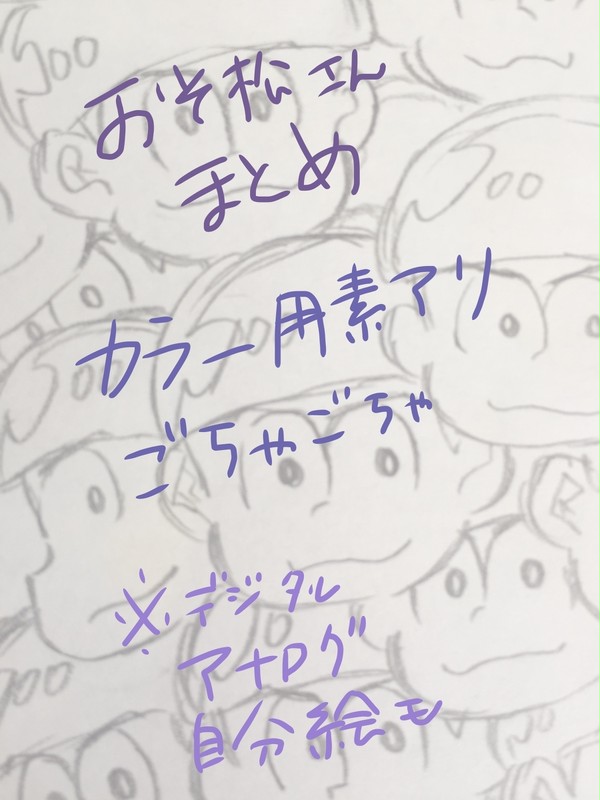 おそ松さん
まとめ
カラー用素アリ
ごちゃごちゃ
※デジタル
アナログ
自分絵モ